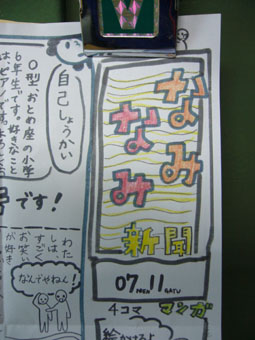 なみ
なみ
新聞
07.NEN 11.GATU
4コマ マンガ
絵かけるよ
自己しょうかい
O型、おとめ座の小学
6年生です。好きなこと
は、ピアノです。
です!
わた
しは、
すごく
お笑い
が好き
なんでやねん!